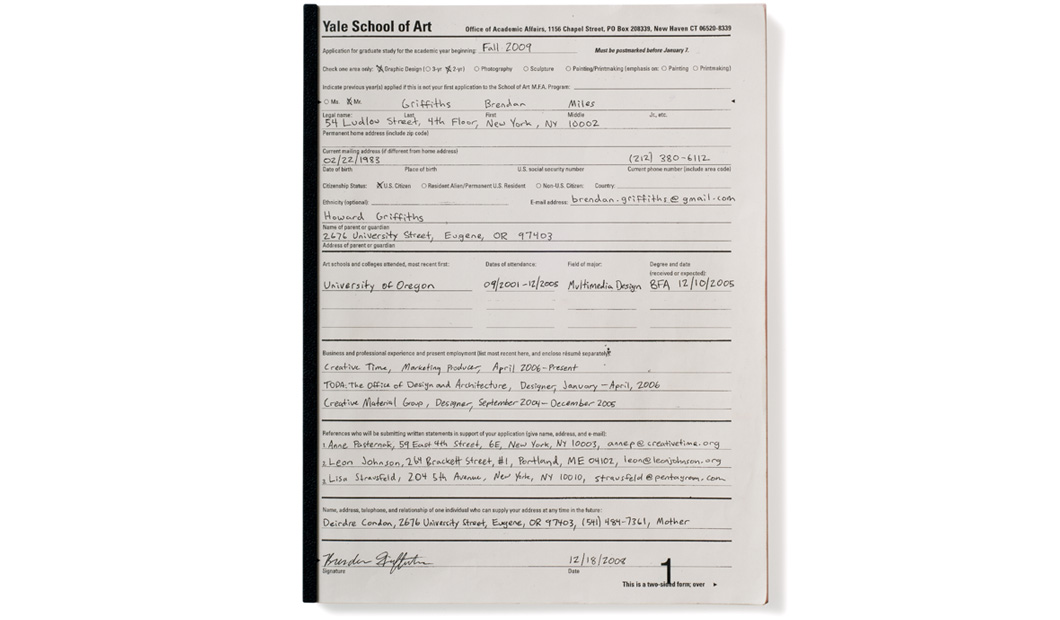 Yale School of Art
Office of Academic Affairs, 1156 Chapel Street, PO Box 208339, New Haven CT 06520-8339
Application for graduate study for the academic year beginning: Fall 2009 Must be postmarked before January 7.
Check one area only: Graphic Design ( 3-yr 2-yr) Photography Sculpture Painting/Printmaking (emphasis on: Painting Printmaking)
Indicate previous year(s) applied if this is not your first application to the School of Art M.F.A. Program:
Ms. Mr. Griffiths Brendan Miles
Legal name: Last First Middle Jr., etc.
54 Ludlow Street, 4th Floor, New York, NY 10002
Permanent home address (include zip code)
Current mailing address (if different from home address)
02/22/1983 (212) 380-6112
Date of birth Place of birth U.S. social security number Current phone number (include area code)
Citizenship Status: U.S. Citizen Resident Alien/Permanent U.S. Resident Non-U.S. Citizen: Country:
Ethnicity (optional): E-mail address: brendan.griffiths@gmail.com
Howard Griffiths
Name of parent or guardian
2676 University Street, Eugene, OR 97403
Address of parent or guardian
Art schools and colleges attended, most recent first: Dates of attendance: Field of major: Degree and date
(received or expected):
University of Oregon 09/2001-12/2005 Multimedia Design BFA 12/10/2005
Business and professional experience and present employment (list most recent here, and enclose résumé separately):
Creative Time, Marketing Producer, April 2006-Present
TODA: The Office of Design and Architecture, Designer, January - April, 2006
Creative Material Group, Designer, September 2004 - December 2005
References who will be submitting written statements in support of your application (give name, address, and e-mail):
1. Anne Pasternak, 59 East 4th Street, 6E, New York, NY 10003, annep@creativetime.org
2. Leon Johnson, 264 Brackett Street, #1, Portland, ME 04102, leon@leonjohnson.org
3. Lisa Strausfeld, 204 5th Avenue, New York, NY 10010, strausfeld@pentagram.com
Name, address, telephone, and relationship of one individual who can supply your address at any time in the future:
Deirdre Condon, 2676 University Street, Eugene, OR 97403, (541) 484-7361, Mother
Brendan Griffiths 12/18/2008
Signature Date
1
This is a two-sided form; over